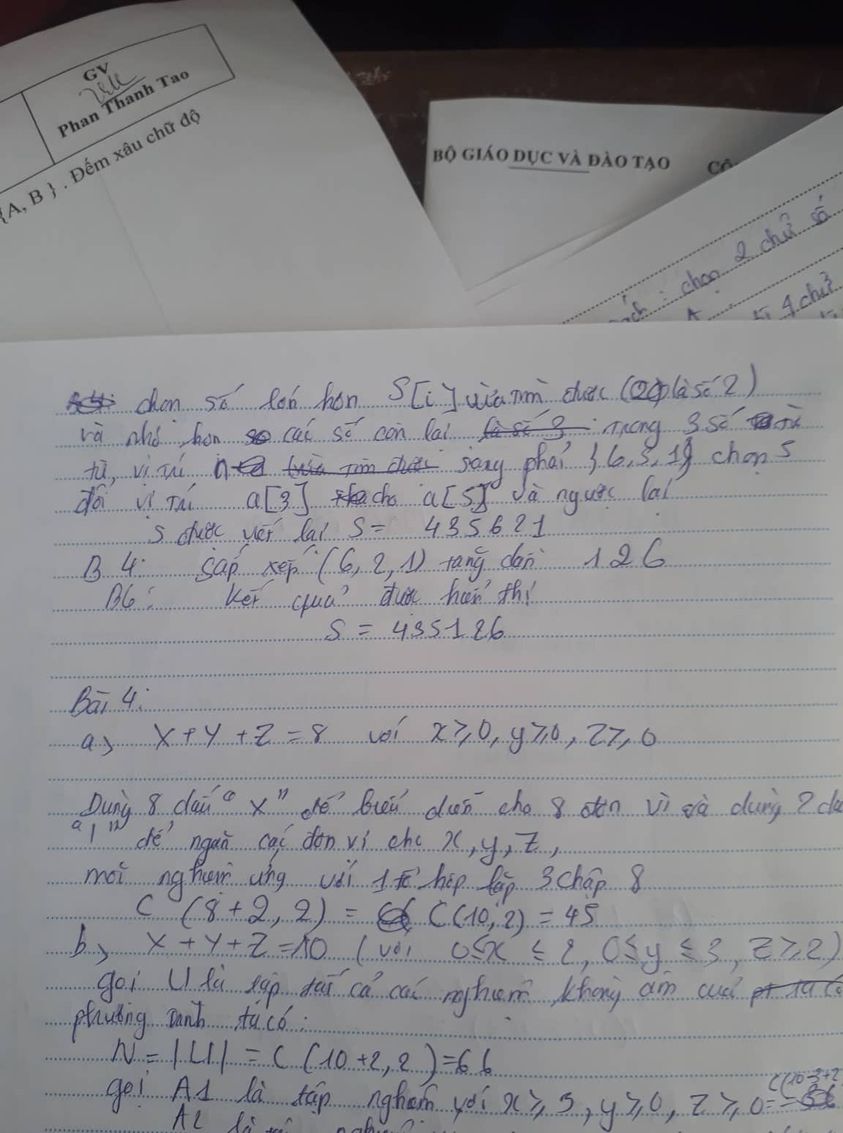 GV
Phan Thanh Tao
{A, B } . Đếm xâu chữ độ
BỘ GIÁO DỤC VÀ ĐÀO TẠO
CÔ
chọn 2 chữ số
4 chữ
chọn số lớn hơn S[i] vừa tìm được (là số 2)
và nhỏ hơn các số còn lại trong 3 số
từ vị trí sang phải {6,5,1} chọn 5
đổi vị trí a[3] cho a[5] và ngược lại
S được viết lại S = 435621
B 4: sắp xếp (6, 2, 1) tăng dần 126
B6: Kết quả được hiển thị
S = 435126
Bài 4:
a> X + Y + Z = 8 với x ≥ 0, y ≥ 0, Z ≥ 0
Dùng 8 dấu "X" để biểu diễn cho 8 đơn vị và dùng 2
"|" để ngăn các đơn vị cho x, y, z,
mỗi nghiệm ứng với 1 tổ hợp lặp 3 chập 8
C (8+2, 2) = C(10, 2) = 45
b> X + Y + Z = 10 (với 0 ≤ x ≤ 2, 0 ≤ y ≤ 3, Z ≥ 2)
gọi U là tập tất cả các nghiệm không âm của
phương trình ta có:
N = |U| = C (10+2, 2) = 66
gọi A1 là tập nghiệm với x ≥ 3, y ≥ 0, Z ≥ 0 =
C(10-3+2
A2 là